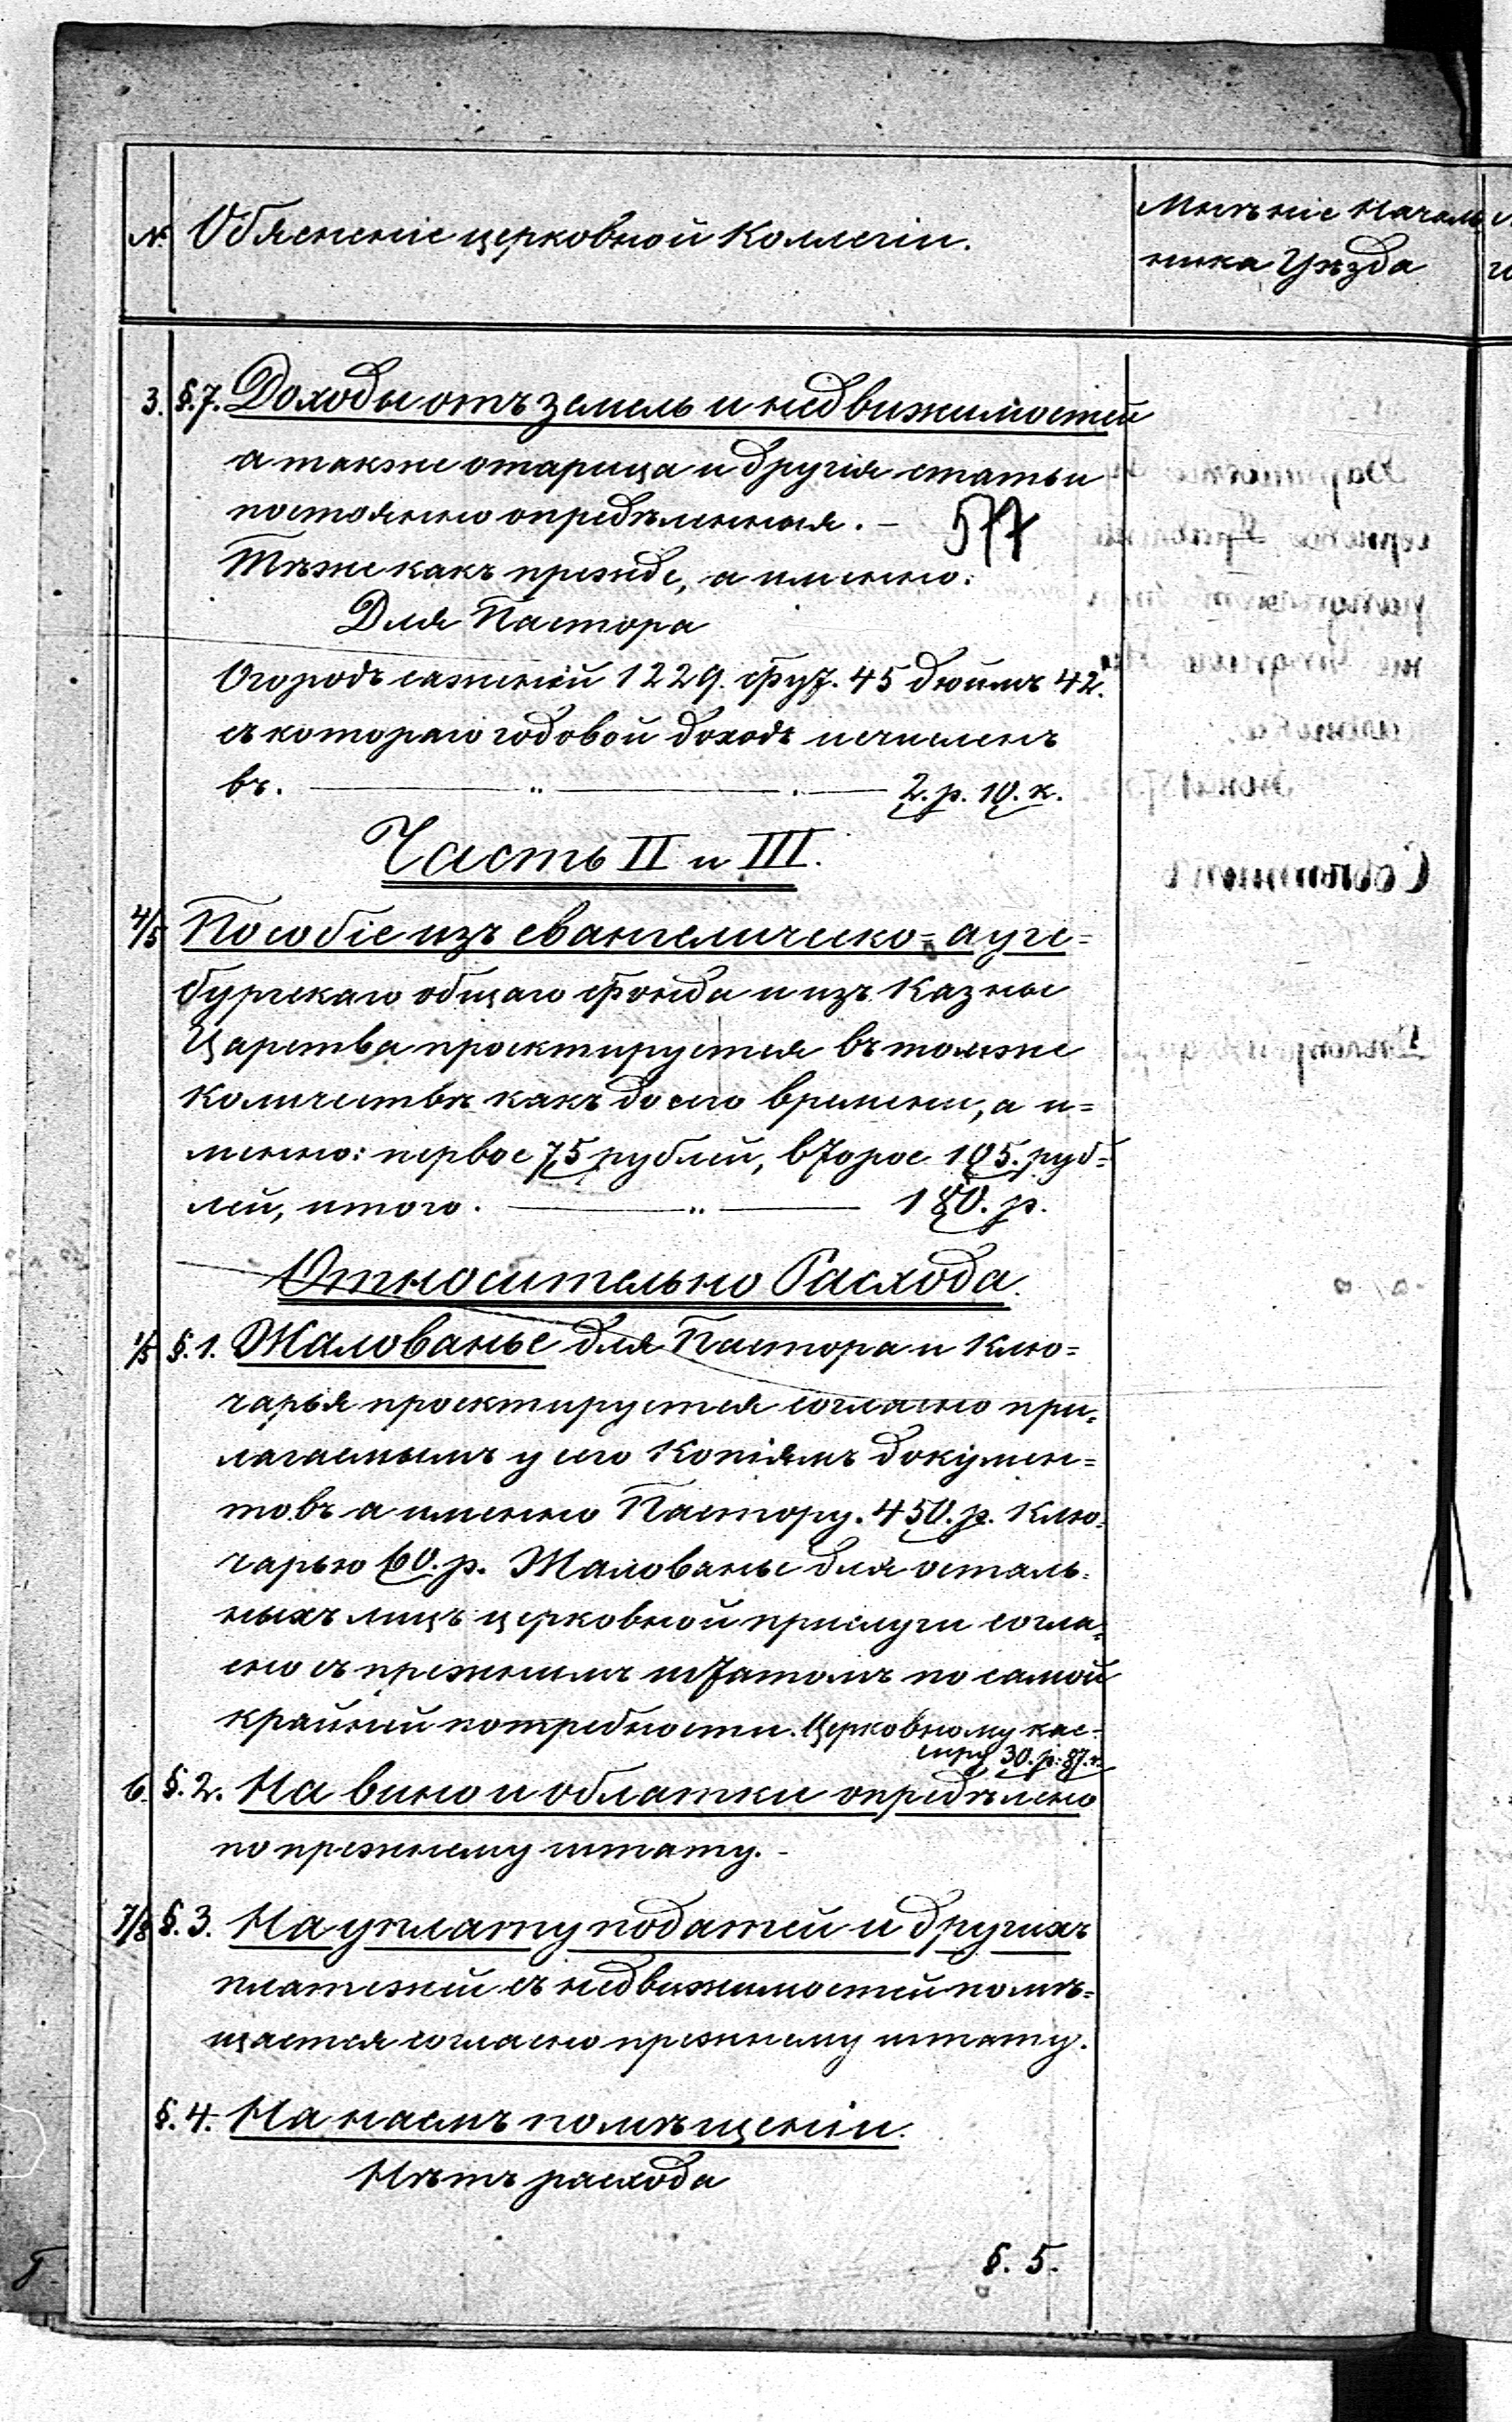 № Обясненіе церковной Коллегіи.
Мнѣніе Началь
ника Уѣзда
3. §.7. Доходы отъ земель и недвижимостей
а также отарица и другія статьи
постоянно опредѣленныя. —
577
Тѣже какъ прежде, а именно:
Для Пастора
Огородъ саженій 1229. фут. 45 дюймъ 42.
съ котораго годовой доходъ исчисленъ
въ. — „ — . — 2. р. 10. к.
Часть II и III.
4/5 Пособіе изъ евангелическо-аугс=
бургскаго общаго фонда и изъ Казны
Царства проектируется въ томже
Количествѣ какъ до сего времени, а и=
менно: первое 75 рублей, второе 105. руб=
лей, итого. — „ — 180. р.
Относительно Расхода.
1/5 §.1. Жалованье для Пастора и Клю=
чарья проектируется согласно при=
лагаемымъ у сего Копіямъ докумен=
товъ а именно Пастору. 450. р. Клю=
чарью 60. р. Жалованье для осталь=
ныхъ лицъ церковной прислуги согла=
сно съ прежнимъ штатомъ по самой
крайней потребности. Церковному кас=
сиру 30. р. 87. к.
6. §.2. На вино и облатки опредѣлено
по прежнему штату. -
7/8 §.3. На уплату податей и другихъ
платежей съ недвижимостей помѣ=
щается согласно прежнему штату.
§.4. На наемъ помѣщеніи.
Нѣтъ расхода
§. 5.